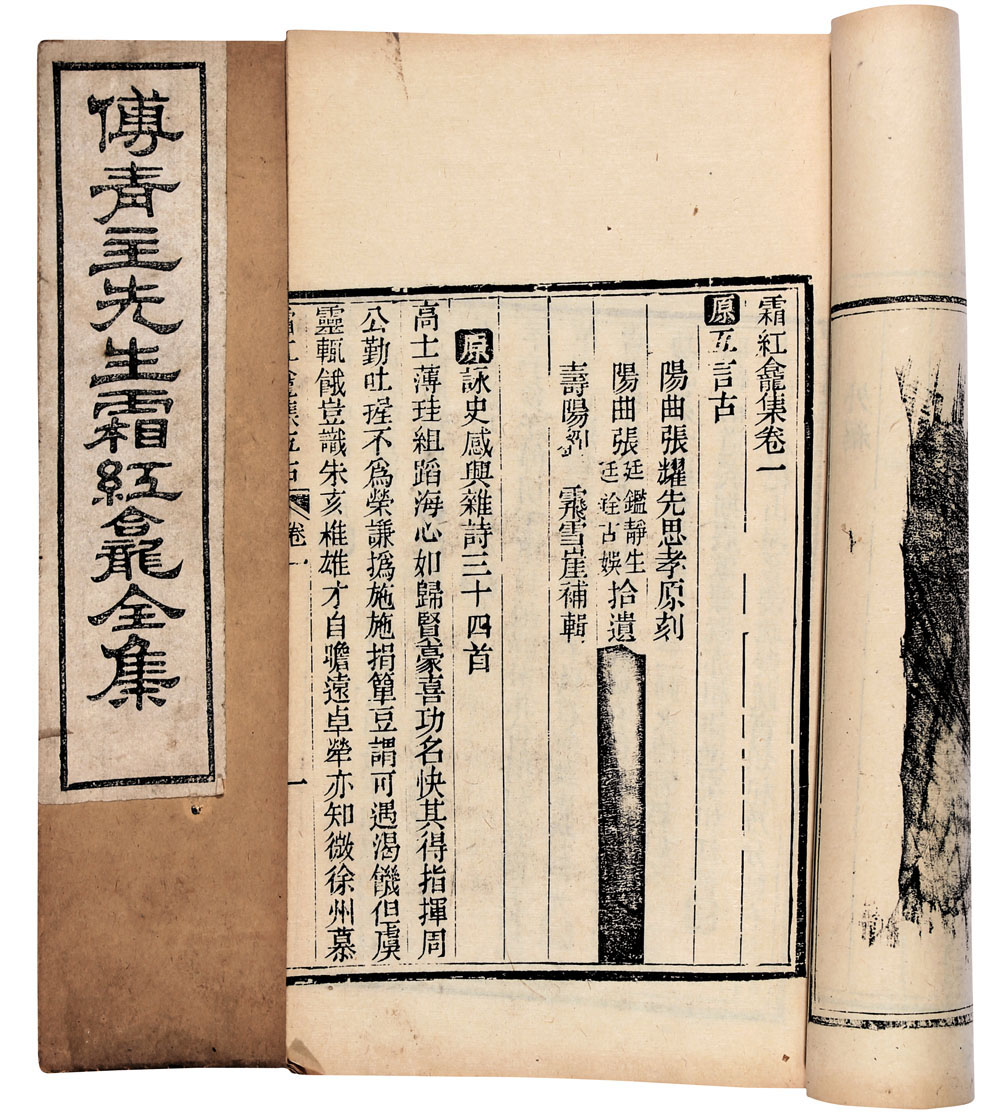 傅青主先生霜紅龕全集
霜紅龕集卷一
原五言古
陽曲張耀先思孝原刻
陽曲張廷鑑靜生廷銓古娛拾遺
壽陽劉雪崖補輯
原詠史感興雜詩三十四首
高士薄珪組蹈海心如歸賢豪喜功名快其得指揮周
公勤吐握不爲榮謙撝施施捐簞豆謂可遇渴饑但虞
靈輒餓豈識朱亥椎雄才自瞻遠卓犖亦知微徐州慕
霜紅龕集五古 卷一 一